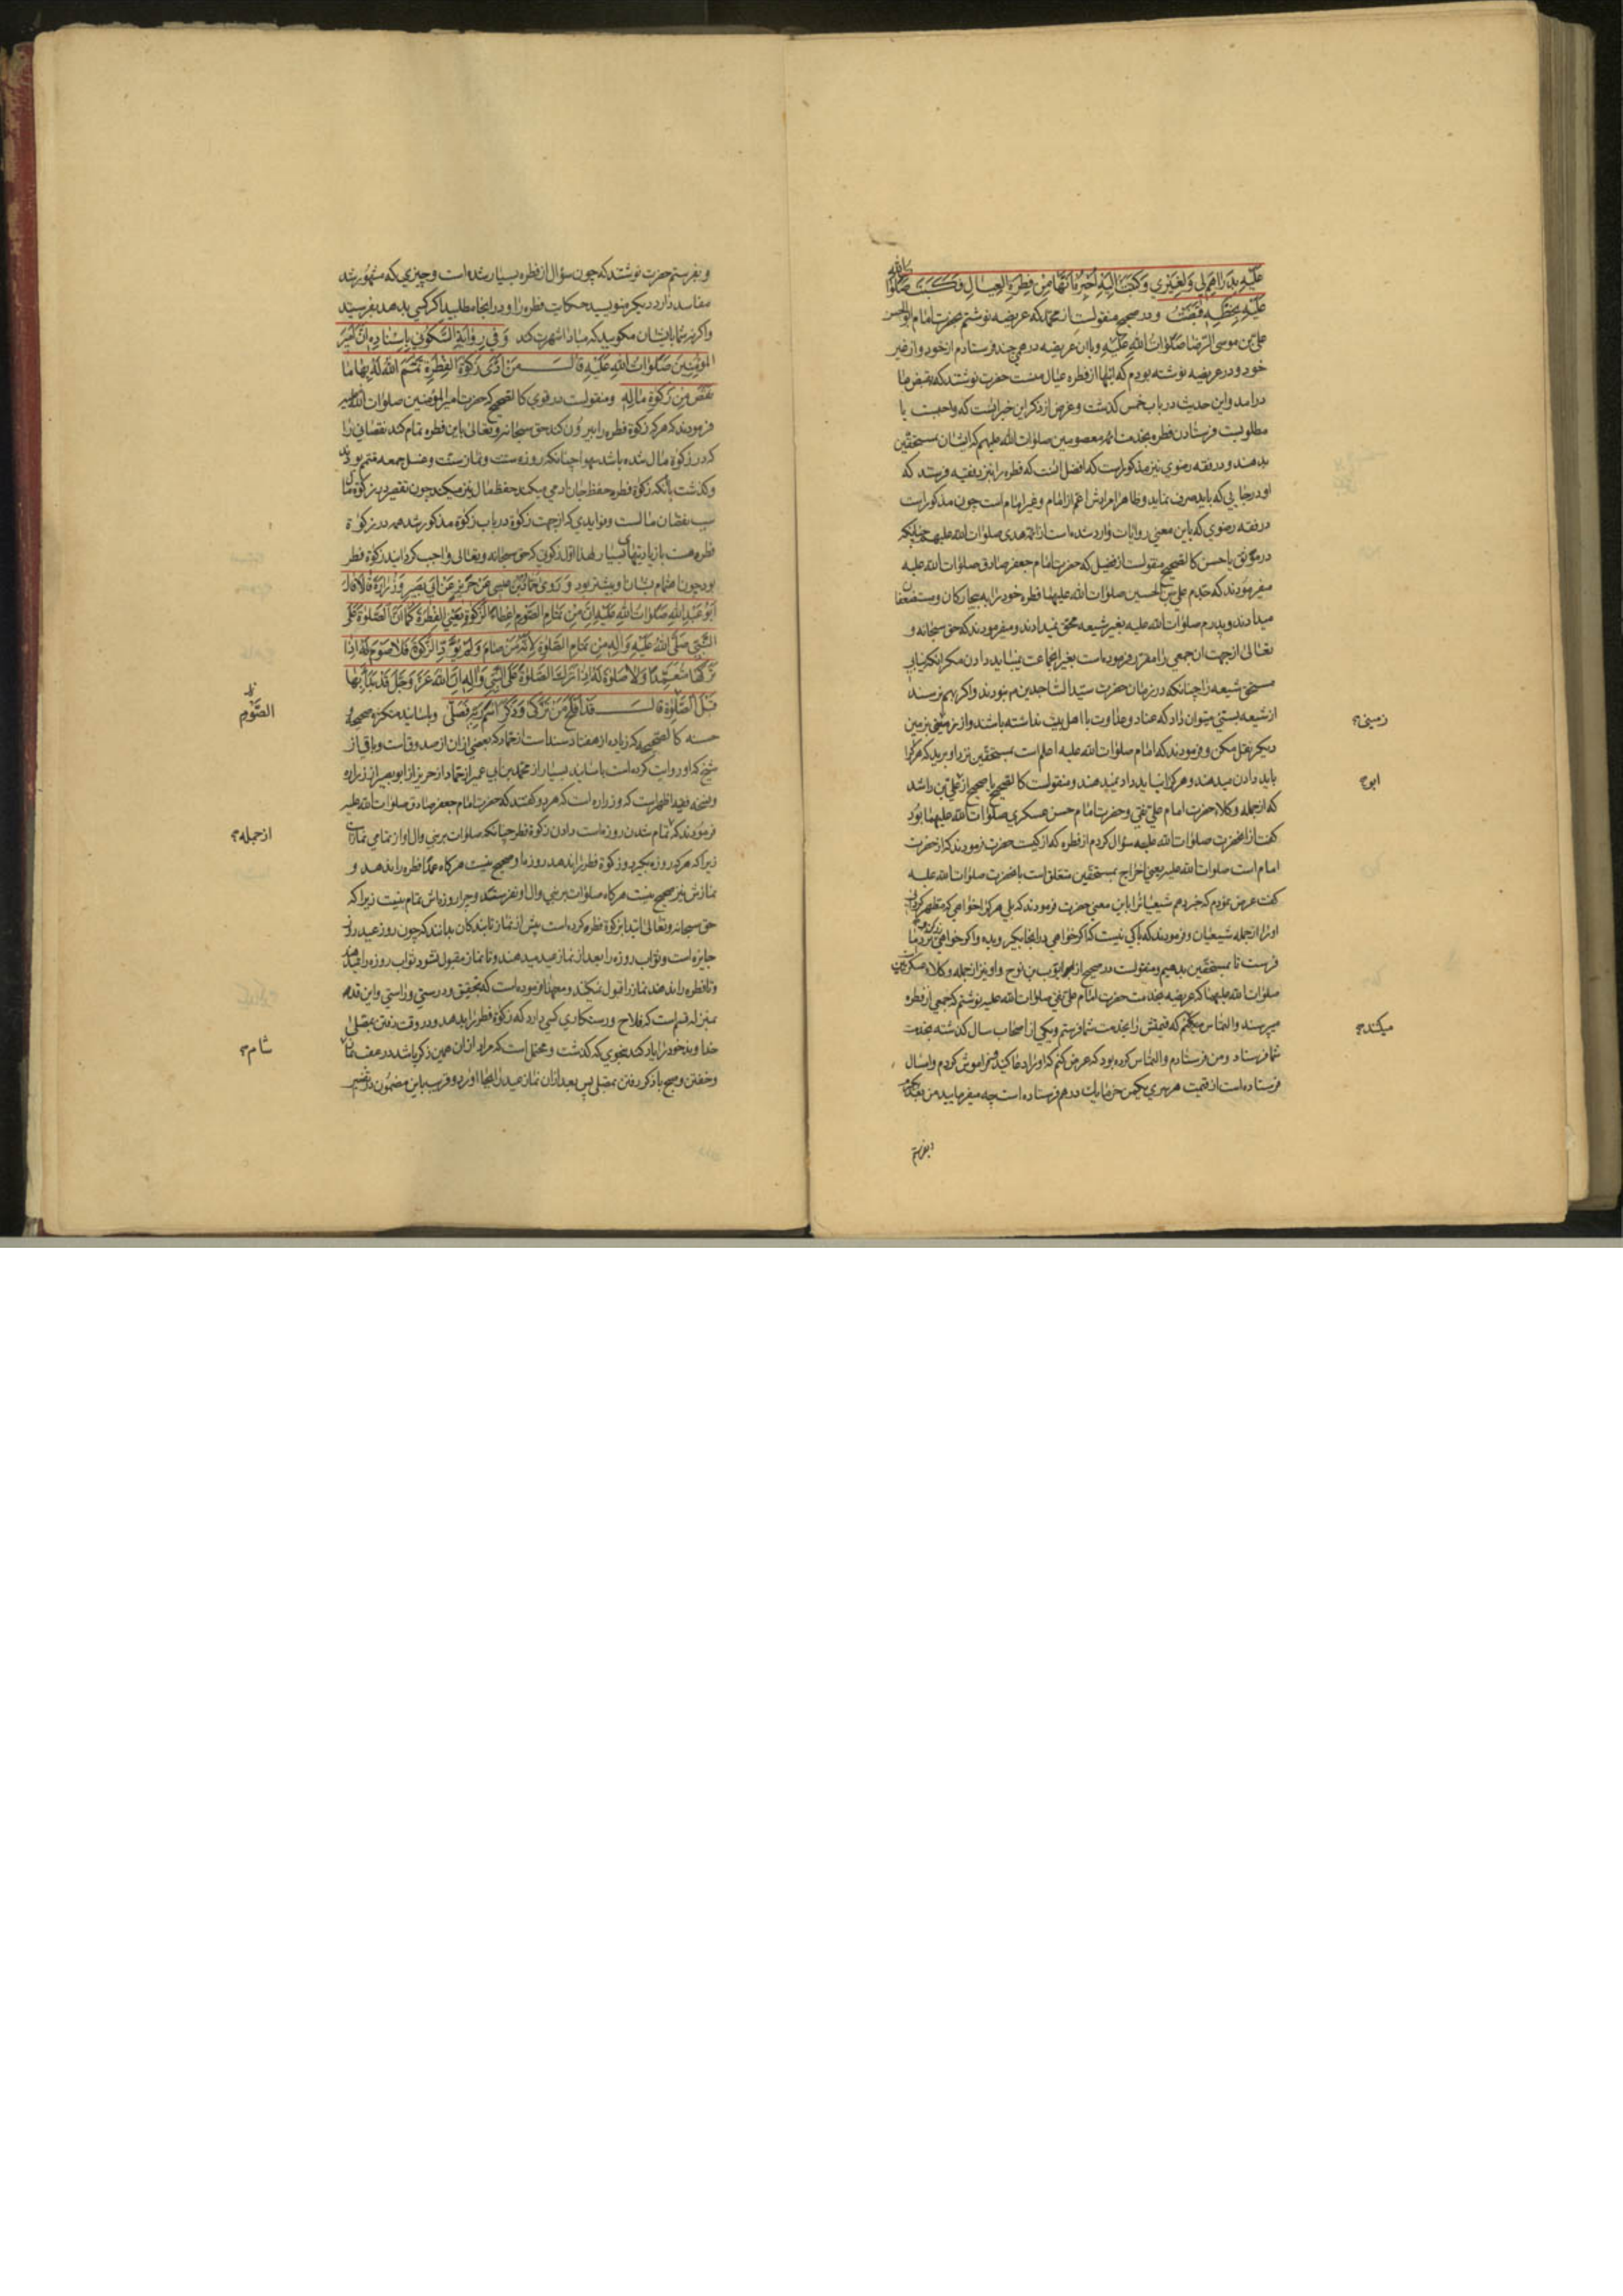 عَلَيْهِ بِدَرَاهِمَ لِي وَلِغَيْرِي وَكَتَبْتُ اِلَيْهِ اُخْبِرُهُ اَنَّهَا مِنْ فِطْرَةِ الْعِيَالِ فَكَتَبَ صَلَوَاتُ اللّٰهِ
عَلَيْهِ بِخَطِّهِ قَبَضْتُ و در صحیح منقولست از محمد که عریضه نوشتم بحضرت امام ابو الحسن
علی بن موسی الرضا صلوات الله علیه و با ان عریضه درهمی چند فرستادم از خود و از غیر
خود و در عریضه نوشته بودم که اینها از فطره عیال منست حضرت نوشتند که بقبض ما
درامد و این حدیث در باب خمس کذشت و غرض از ذکر این خبر انست که واجبست یا
مطلوبست فرستادن فطره بخدمت ائمه معصومین صلوات الله علیهم که ایشان بمستحقین
بدهند و در فقه رضوی نیز مذکور است که افضل انست که فطره را نیز بفقیه فرستد که
او در جایی که باید صرف نماید و ظاهرا مرادش اعم از امام و غیر امام است چون مذکور است
در فقه رضوی که باین معنی روایات وارد شده است از ائمه هدی صلوات الله علیهم چنانکه
در موثق یا حسن کالصحیح منقولست از فضیل که حضرت امام جعفر صادق صلوات الله علیه
میفرمودند که جدم علی بن الحسین صلوات الله علیهما فطره خود را به بیچارکان و مستضعفان
میدادند و پدرم صلوات الله علیه بغیر شیعه محق نمیدادند و میفرمودند که حق سبحانه و
تعالی از جهت ان جمعی را مقرر فرموده است بغیر انجماعت نمیباید دادن مکر انکه نیابی
مستحق شیعه را چنانکه در زمان حضرت سید الساجدین م نبودند و اکر بهم نرسند
از شیعه بسنی میتوان داد که عناد و عداوت با اهل بیت نداشته باشند و از زمینی بزمین
دیکر نقل مکن و فرمودند که امام صلوات الله علیه اعلم است بمستحقین نزد او برید که هر کرا
باید دادن میدهند و هر کرا نباید داد نمیدهند و منقولست کالصحیح یا صحیح از علی بن راشد
که از جمله وکلاء حضرت امام علی نقی و حضرت امام حسن عسکری صلوات الله علیهما بود
کفت از انحضرت صلوات الله علیه سؤال کردم از فطره که از کیست حضرت فرمودند که از حضرت
امام است صلوات الله علیه یعنی اخراج بمستحقین متعلق است بانحضرت صلوات الله علیه
کفت عرض نمودم که خبر دهم شیعیانرا باین معنی حضرت فرمودند که بلی هر کرا خواهی که مطهر کردانی
او را از جمله شیعیان و فرمودند که باکی نیست که اکر خواهی در انجا بکیر و بده و اکر خواهی نزد ما
فرست تا بمستحقین بدهیم و منقولست در صحیح از ایوب بن نوح و او نیز از جمله وکلاء عسکریین
صلوات الله علیهما که عریضه بخدمت حضرت امام علی نقی صلوات الله علیه نوشتم که جمعی از فطره
میپرسند و التماس میکنم که قیمتش را بخدمت شما فرستم و یکی از اصحاب سال کذشته بخدمت
شما فرستاد و من فرستادم و التماس کرده بود که عرض کنم که او را دعا کنید فراموش کردم و امسال
فرستاده است از قیمت هر سری یکمن خرما یك درهم فرستاده است چه میفرمایید من بعد بکیرم
و بفرستم
زمینی؟
ابوح
میکند؟
و بفرستم حضرت نوشتند که چون سؤال از فطره بسیار شده است و چیزی که مشهور شد
مفاسد دارد دیکر منویسید حکایت فطره را و در انجا مطلبید اکر کسی بدهد بفرستید
و اکر نه شما بایشان مکویید که مبادا شهرت کند وَفِي رِوَايَةِ السَّكُونِي بِاِسْنَادِهِ اَنَّ اَمِيرَ
الْمُؤْمِنِينَ صَلَوَاتُ اللّٰهِ عَلَيْهِ قَالَ مَنْ اَدَّى زَكٰوةَ الْفِطْرَةِ تَمَّمَ اللّٰهُ لَهُ بِهَا مَا
نَقَصَ مِنْ زَكٰوةِ مَالِهِ و منقولست در قوی کالصحیح که حضرت امیر المؤمنین صلوات الله علیه
فرمودند که هر که زکوة فطره را بیرون کند حق سبحانه و تعالی باین فطره تمام کند نقصانی را
که در زکوة مال شده باشد سهوا چنانکه روزه سنت و نماز سنت و غسل جمعه متمم بودند
و کذشت بآنکه زکوة فطره حفظ جان ادمی میکند حفظ مال نیز میکند چون تقصیر در زکوة مال
سبب نقصان مالست و فوایدی که از جهت زکوة در باب زکوة مذکور شد همه در زکوة
فطره هست با زیادتیهای بسیار لهذا اول زکوتی که حق سبحانه و تعالی واجب کردانید زکوة فطر
بود چون اهتمام بشان او بیشتر بود وَرَوَى حَمَّادُ بْنُ عِيسَى عَنْ حَرِيزٍ عَنْ اَبِي بَصِيرٍ وَزُرَارَةَ قَالَا قَالَ
اَبُو عَبْدِ اللّٰهِ صَلَوَاتُ اللّٰهِ عَلَيْهِ اِنَّ مِنْ تَمَامِ الصَّوْمِ اِعْطَاءَ الزَّكٰوةِ يَعْنِي الْفِطْرَةَ كَمَا اَنَّ الصَّلٰوةَ عَلَى
النَّبِيِّ صَلَّى اللّٰهُ عَلَيْهِ وَآلِهِ مِنْ تَمَامِ الصَّلٰوةِ لِاَنَّهُ مَنْ صَامَ وَلَمْ يُؤَدِّ الزَّكٰوةَ فَلَا صَوْمَ لَهُ اِذَا
تَرَكَهَا مُتَعَمِّدًا وَلَا صَلٰوةَ لَهُ اِذَا تَرَكَ الصَّلٰوةَ عَلَى النَّبِيِّ وَآلِهِ اِنَّ اللّٰهَ عَزَّ وَجَلَّ قَدْ بَدَأَ بِهَا
قَبْلَ الصَّلٰوةِ قَالَ قَدْ اَفْلَحَ مَنْ تَزَكَّى وَذَكَرَ اسْمَ رَبِّهِ فَصَلَّى و باسانید متکثره صحیحه و
حسنه کالصحیحه که زیاده از هفتاد سند است از حماد که بعضی از ان از صدوق است و باقی از
شیخ که او روایت کرده است باسانید بسیار از محمد بن ابی عمیر از حماد از حریز از ابو بصیر از زراره
و نسخه فقیه اظهر است که و زراره است که هر دو کفتند که حضرت امام جعفر صادق صلوات الله علیه
فرمودند که تمام شدن روزه است دادن زکوة فطر چنانکه صلوات بر نبی و ال او از تمامی نماز است
زیرا که هر که روزه بکیرد و زکوة فطر را ندهد روزه او صحیح نیست هر کاه عمدا فطره را ندهد و
نمازش نیز صحیح نیست هر کاه صلوات بر نبی و ال او نفرستد و چرا روزه اش تمام نیست زیرا که
حق سبحانه و تعالی ابتدا بزکوة فطره کرده است پیش از نماز تا بندکان بدانند که چون روز عید روز
جایزه است و ثواب روزه را بعد از نماز عید میدهند و تا نماز مقبول نشود ثواب روزه را نمیدهند
و تا فطره را ندهند نماز را قبول نمیکنند و معهذا فرموده است که بتحقیق و درستی و راستی و این قد
بمنزله قسم است که فلاح و رستکاری کسی دارد که زکوة فطر را بدهد و در وقت رفتن بمصلی
خداوند خود را یاد کند بنحوی که کذشت و محتمل است که مراد از ان همین ذکر باشد در عقب نماز
و خفتن و صبح با ذکر رفتن بمصلی پس بعد از ان نماز عید را بجا اورد و قریب باین مضمون در تفسیر
الصَّوْمِ
ازجمله؟
شام؟